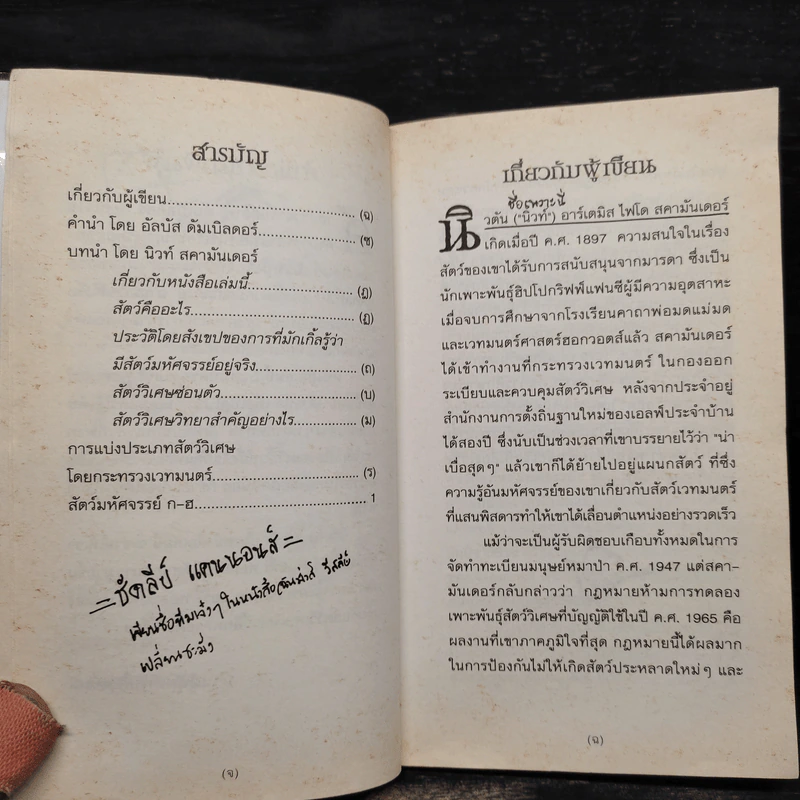 สารบัญ
เกี่ยวกับผู้เขียน.................................................. (ฉ)
คำนำ โดย อัลบัส ดัมเบิลดอร์............................ (ซ)
บทนำ โดย นิวท์ สคามันเดอร์
เกี่ยวกับหนังสือเล่มนี้............................ (ฎ)
สัตว์คืออะไร.......................................... (ฏ)
ประวัติโดยสังเขปของการที่มักเกิ้ลรู้ว่า
มีสัตว์มหัศจรรย์อยู่จริง........................... (ถ)
สัตว์วิเศษซ่อนตัว................................... (บ)
สัตว์วิเศษวิทยาสำคัญอย่างไร................. (ม)
การแบ่งประเภทสัตว์วิเศษ
โดยกระทรวงเวทมนตร์...................................... (ร)
สัตว์มหัศจรรย์ ก-ฮ............................................. 1
=ชัดลีย์ แคนนอนส์=
เขียนชื่อทีมเจ๋งๆ ในหนังสือ
(จ)
เกี่ยวกับผู้เขียน
ชื่อเหาะนี่
นิวตัน ("นิวท์") อาร์เตมิส ไฟโด สคามันเดอร์
เกิดเมื่อปี ค.ศ. 1897 ความสนใจในเรื่อง
สัตว์ของเขาได้รับการสนับสนุนจากมารดา ซึ่งเป็น
นักเพาะพันธุ์ฮิปโปกริฟฟ์แฟนซีผู้มีความอุตสาหะ
เมื่อจบการศึกษาจากโรงเรียนคาถาพ่อมดแม่มด
และเวทมนตร์ศาสตร์ฮอกวอตส์แล้ว สคามันเดอร์
ได้เข้าทำงานที่กระทรวงเวทมนตร์ ในกองออก
ระเบียบและควบคุมสัตว์วิเศษ หลังจากประจำอยู่
สำนักงานการตั้งถิ่นฐานใหม่ของเอลฟ์ประจำบ้าน
ได้สองปี ซึ่งนับเป็นช่วงเวลาที่เขาบรรยายไว้ว่า "น่า
เบื่อสุดๆ" แล้วเขาก็ได้ย้ายไปอยู่แผนกสัตว์ ที่ซึ่ง
ความรู้อันมหัศจรรย์ของเขาเกี่ยวกับสัตว์เวทมนตร์
ที่แสนพิสดารทำให้เขาได้เลื่อนตำแหน่งอย่างรวดเร็ว
แม้ว่าจะเป็นผู้รับผิดชอบเกือบทั้งหมดในการ
จัดทำทะเบียนมนุษย์หมาป่า ค.ศ. 1947 แต่สคา-
มันเดอร์กลับกล่าวว่า กฎหมายห้ามการทดลอง
เพาะพันธุ์สัตว์วิเศษที่บัญญัติใช้ในปี ค.ศ. 1965 คือ
ผลงานที่เขาภาคภูมิใจที่สุด กฎหมายนี้ได้ผลมาก
ในการป้องกันไม่ให้เกิดสัตว์ประหลาดใหม่ๆ และ
(ฉ)